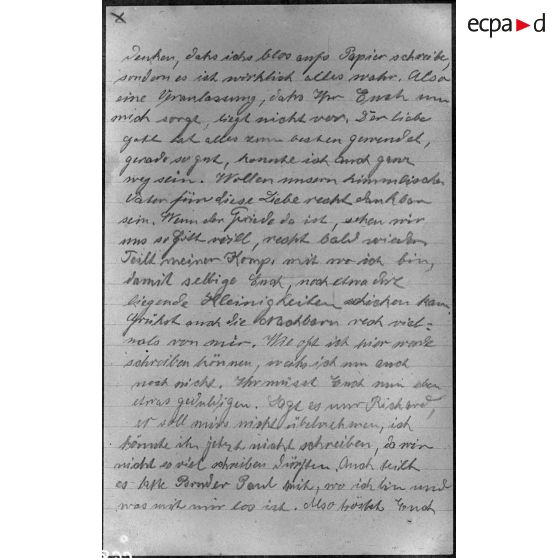 ecpad
X
denken, dass ichs blos aufs Papier schreibe,
sondern es ist wirklich alles wahr. Also
eine Veranlassung, dass Ihr Euch um
mich sorgt, liegt nicht vor. Der liebe
Gott hat alles zum besten gewendet,
gerade so gut, konnte ich auch ganz
weg sein. Wollen unserm himmlischen
Vater für diese Liebe recht dankbar
sein. Wenn der Friede da ist, sehen wir
uns so Gott will, recht bald wieder.
Teilt meiner Komp. mit wo ich bin,
damit selbige Euch, noch etwa dort
liegende Kleinigkeiten schicken kann.
Grüsst auch die Nachbarn rech viel=
mals von mir. Wie oft ich hier werde
schreiben können, weiss ich nun auch
noch nicht. Ihr müsst Euch nun eben
etwas gedultigen. Sagt es nur Richard,
er soll mirs nicht übelnehmen, ich
könnte ihn jetzt nicht schreiben, da wir
nicht so viel schreiben dürften. Auch teilt
es bitte Bruder Paul mit, wo ich bin und
was mit mir los ist. Also tröstet Euch